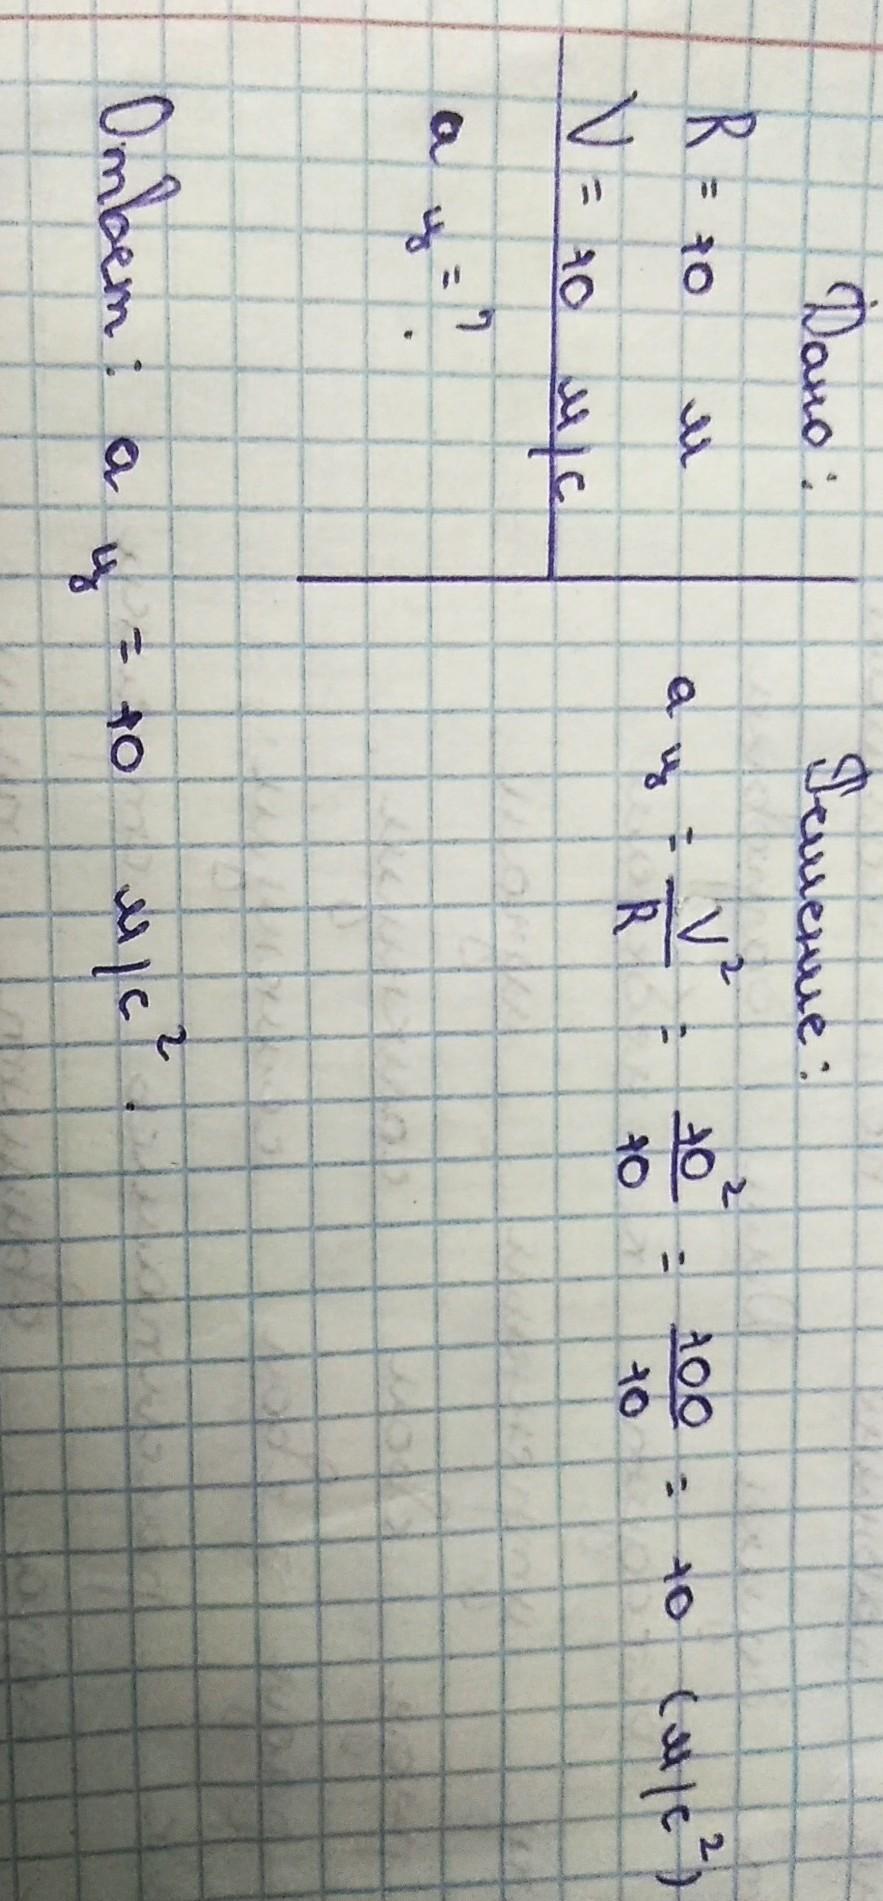 Дано:
R = 10 м
V = 10 м/с
a ц = ?
Решение:
a ц = V²/R = 10²/10 = 100/10 = 10 (м/с²)
Ответ: a ц = 10 м/с².